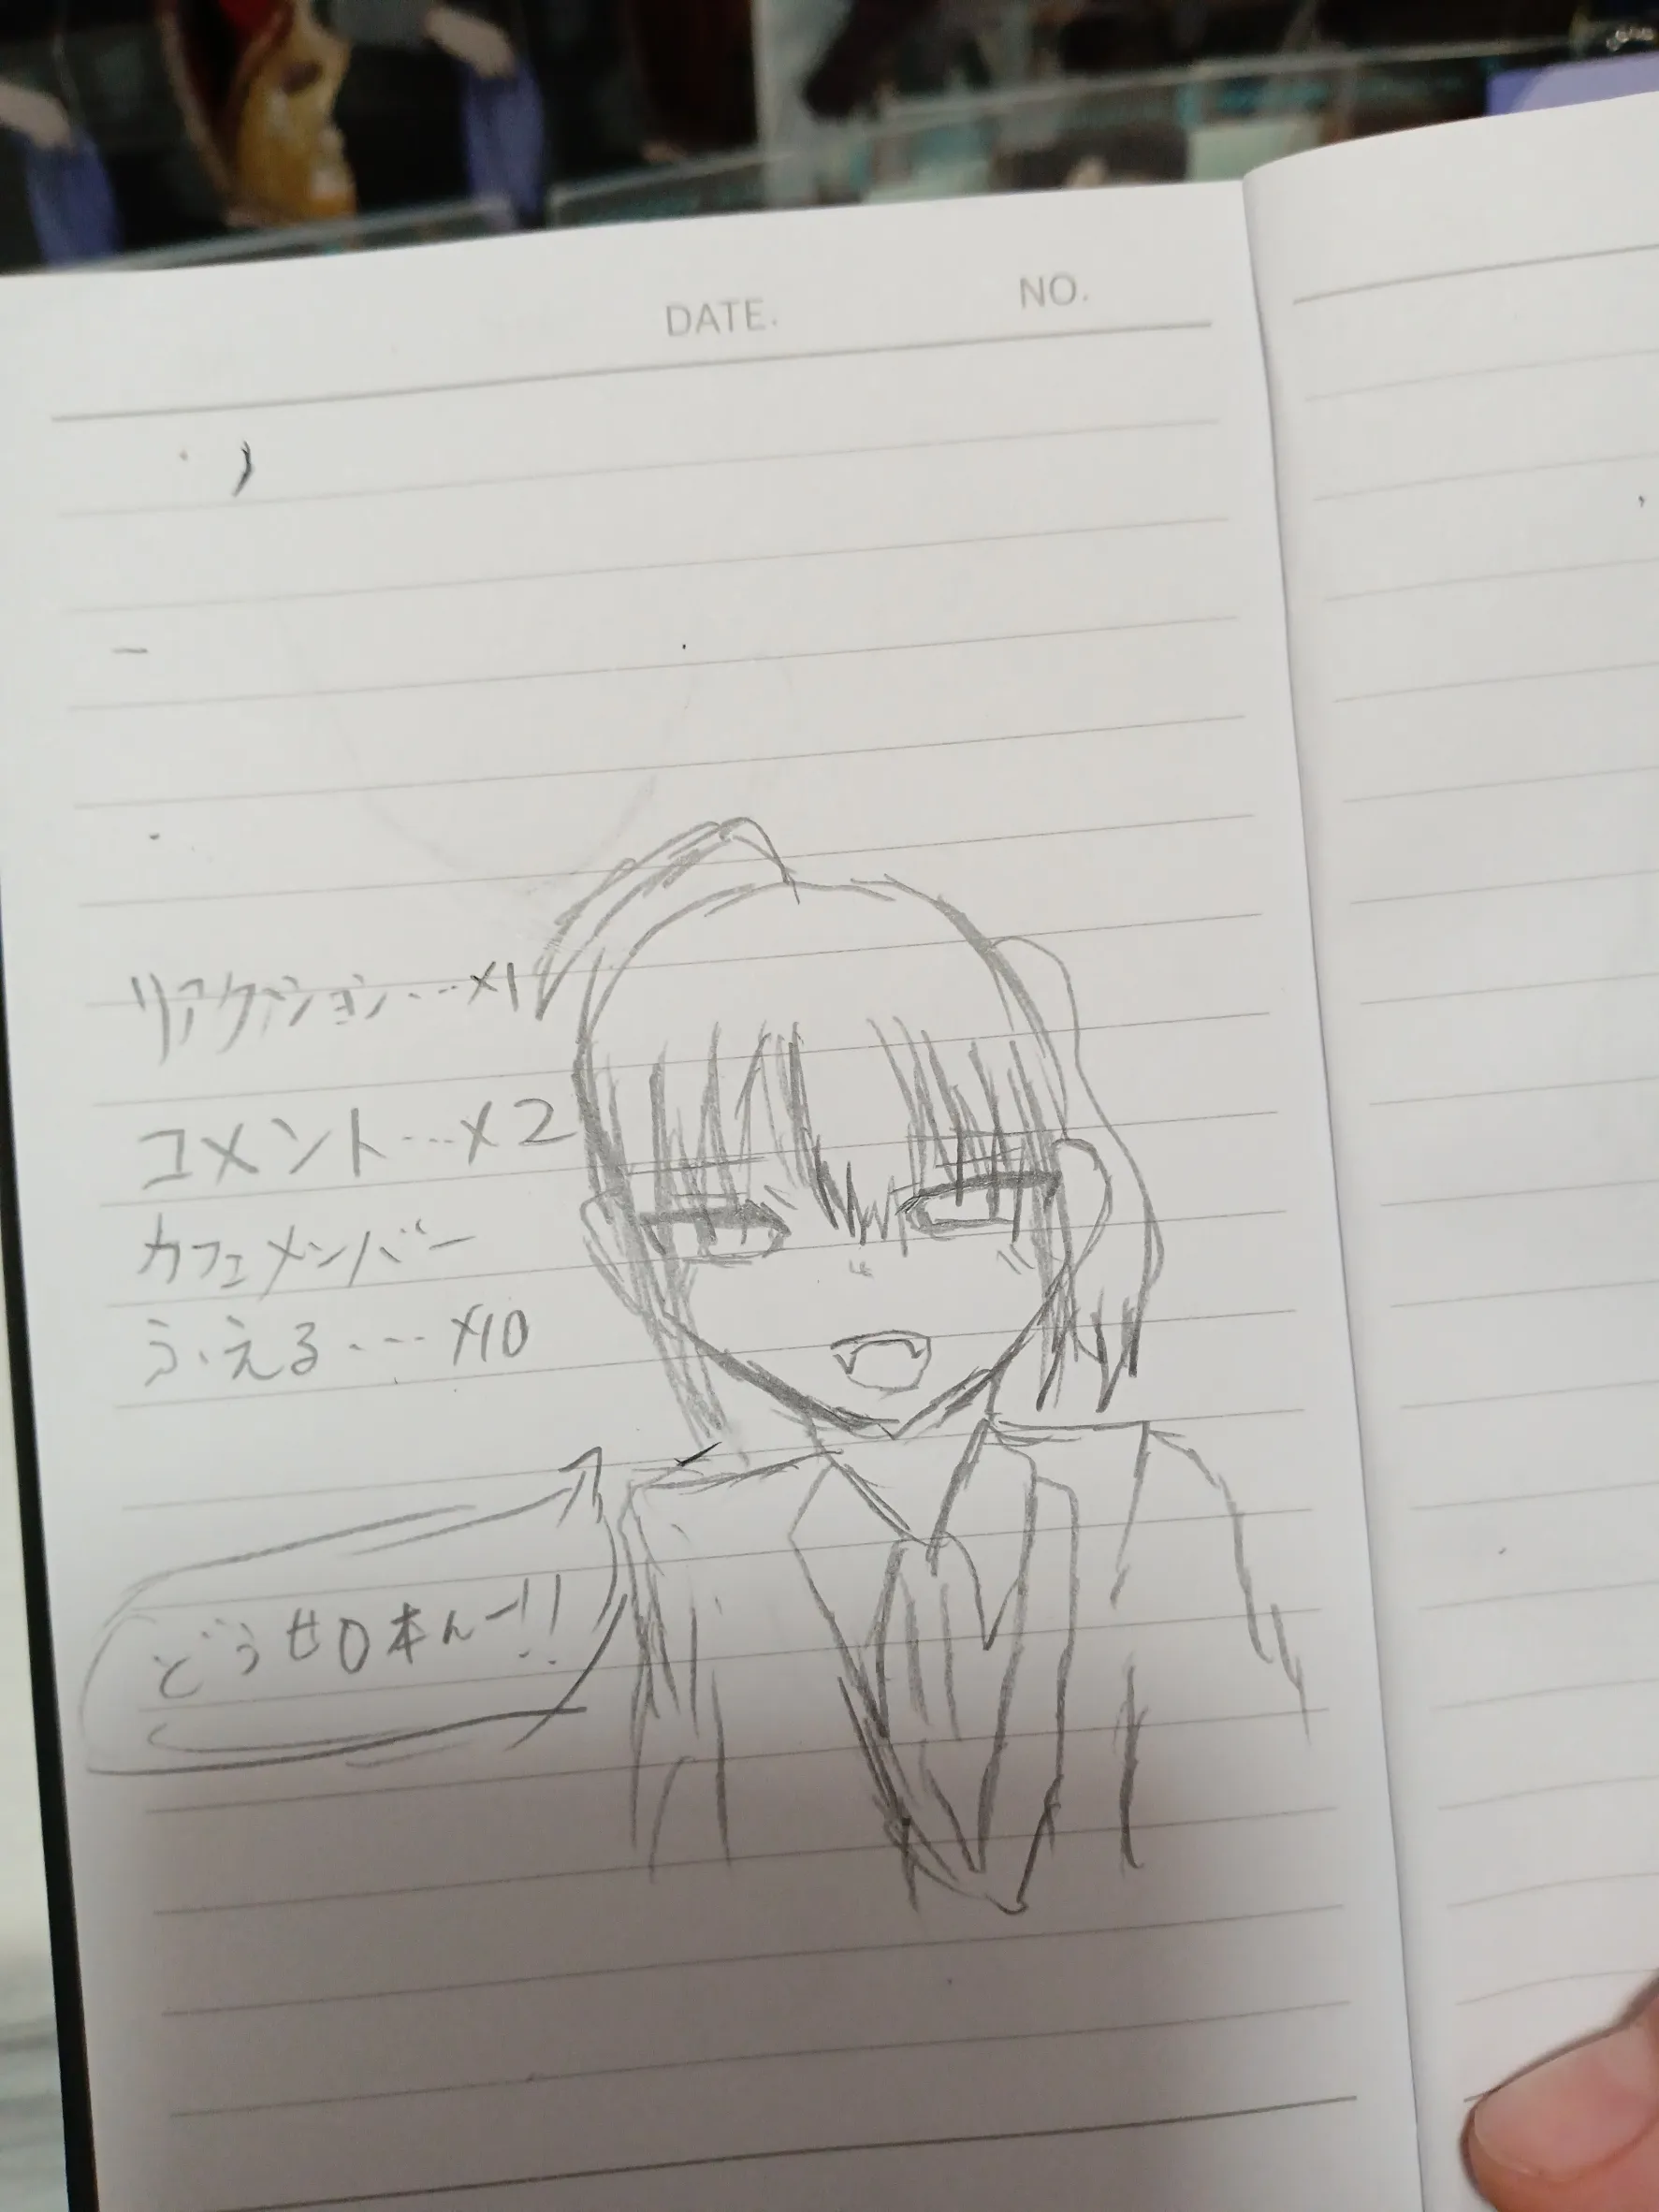 DATE. NO.
リアクション…×1
コメント…×2
カフェメンバー
ふえる…×10
どうせ0本んー!!